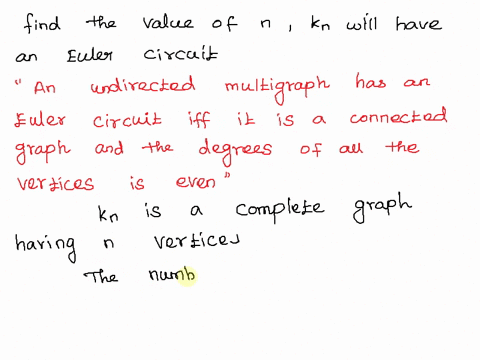 find the value of n, kn will have
an Euler circuit
"An undirected multigraph has an
Euler circuit iff it is a connected
graph and the degrees of all the
vertices is even"
kn is a complete graph
having n vertices
The numb